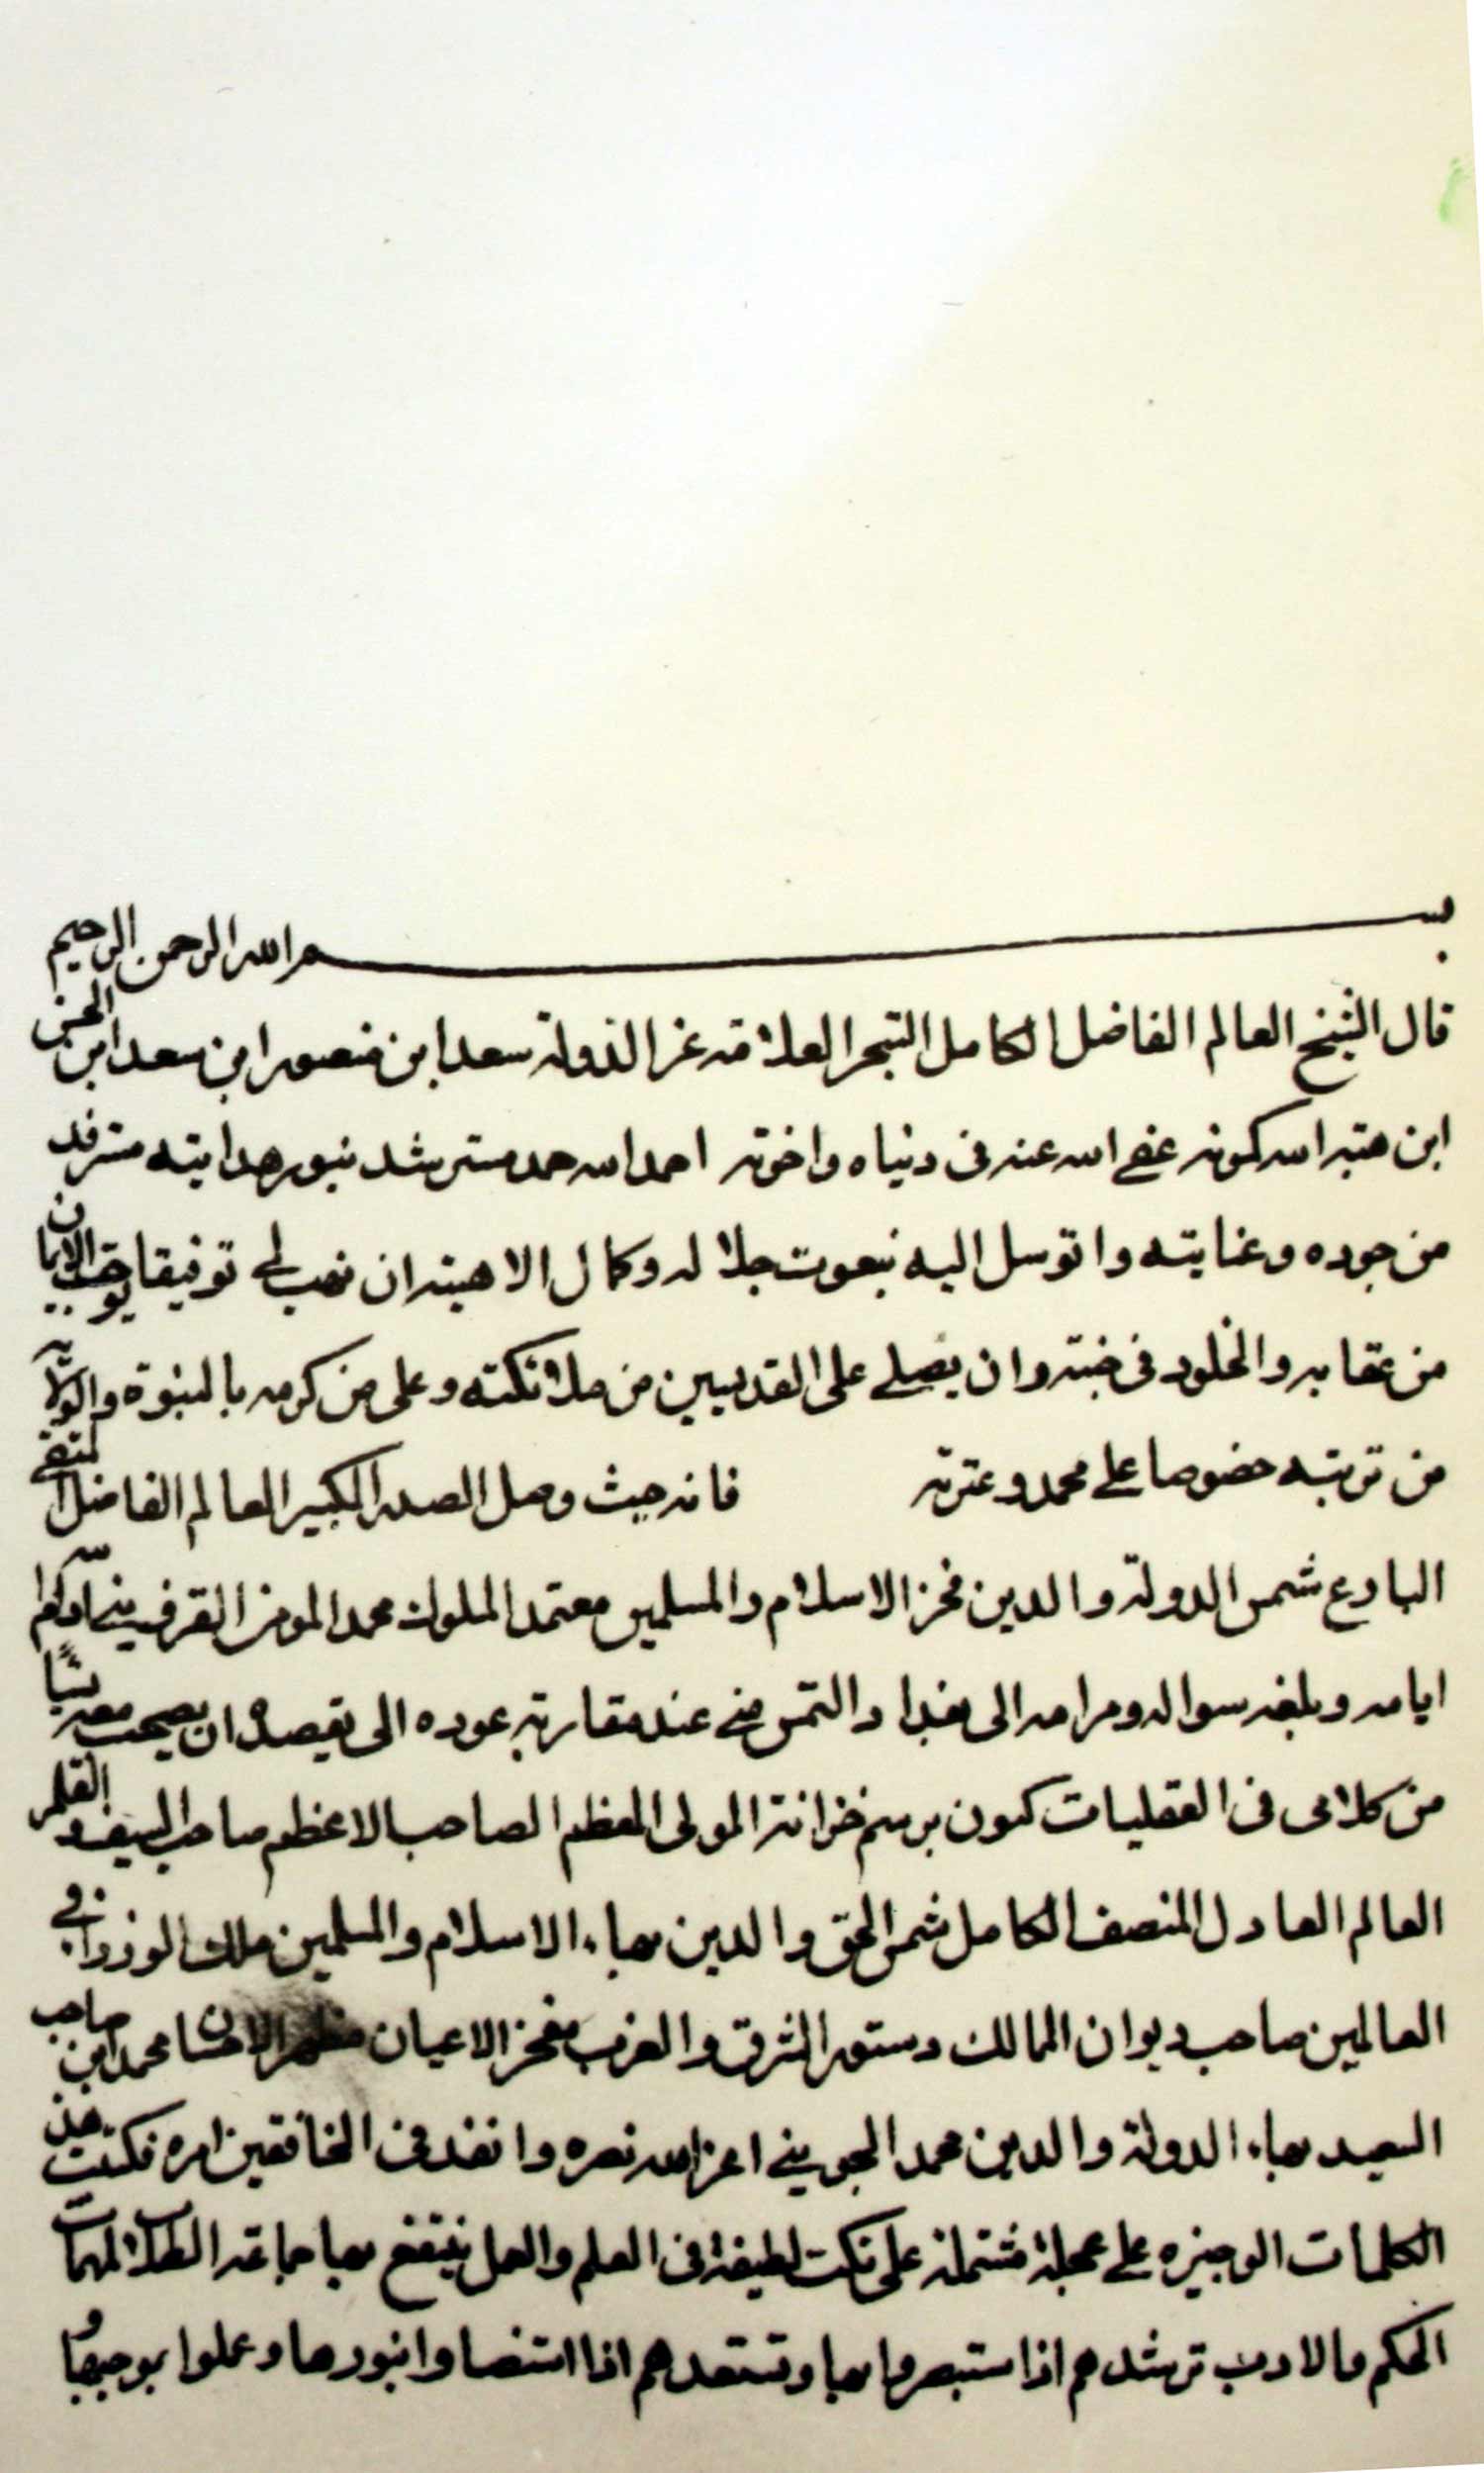 بسم الله الرحمن الرحيم
قال الشيخ العالم الفاضل الكامل المتبحر العلامة عز الدولة سعد ابن منصور ابن سعد ابن الحسن
ابن هبته الله كمونه عفى الله عنه فى دنياه واخرته احمد الله حمد مسترشد بنور هدايته مسترفد
من جوده وعنايته واتوسل اليه بنعوت جلاله وكمال الاهيته ان يهب لى توفيقا يوجب الامان
من عقابه والخلود فى جنته وان يصلى على القدسيين من ملائكته وعلى من كرمه بالنبوة والولاية
من تربته خصوصا على محمد وعترته فانه حيث وصل الصدر الكبير العالم الفاضل المتقى
البارع شمس الدولة والدين فخر الاسلام والمسلمين معتمد الملوك محمد المومن القزوينى ادام الله
ايامه وبلغه سواله ومرامه الى بغداد التمس منى عند مقاربته عوده الى يقصده ان يصحب معه شيئا
من كلامى فى العقليات كمون برسم خزانة المولى المعظم الصاحب الاعظم صاحب السيف والقلم
العالم العادل المنصف الكامل شمس الحق والدين بهاء الاسلام والمسلمين ملك الوزراء فى
العالمين صاحب ديوان الممالك دستور الشرق والغرب مفخر الاعيان مظهر الاحسان محمد ابن صاحب
السعيد بهاء الدولة والدين محمد الجوينى اعز الله نصره وانفذ فى الخافقين امره فكتبت هذه
الكلمات الوجيزه على عجلة مشتملة على نكت لطيفة فى العلم والعمل ينتفع بها جماعة الطلاب لمهمات
الحكم والادب ترشدهم اذا ستبصروا بها وتستعدهم اذا استضاوا بنورها وعملوا بموجبها و